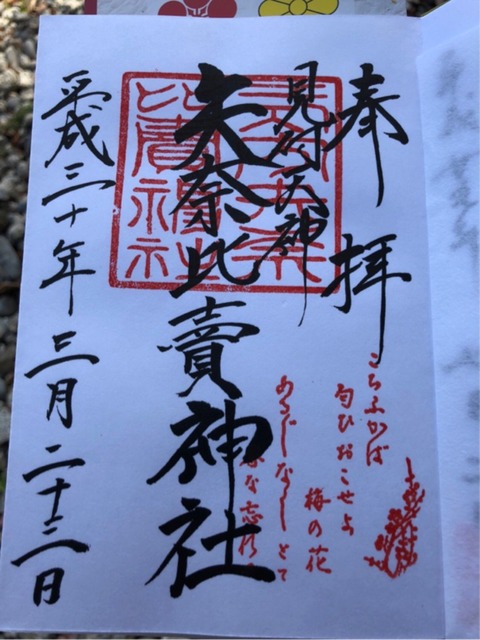 奉拝
こちふかば
匂ひおこせよ
梅の花
あるじなしとて
な忘れ
見付天神
矢奈比賣神社
比賣神社
平成三十年三月二十三日